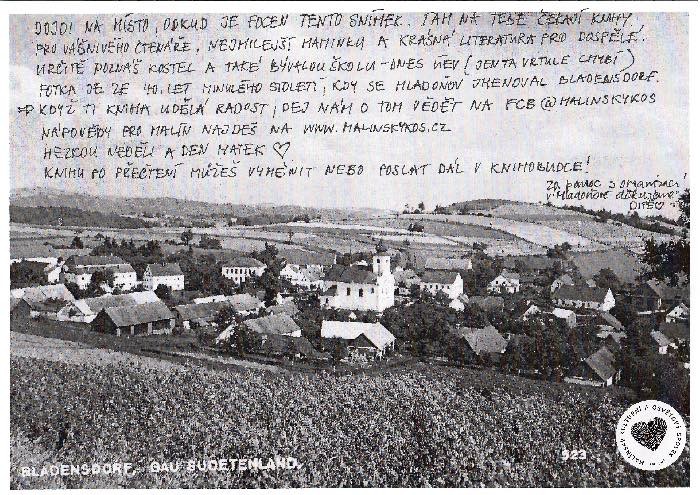 DOJDI NA MÍSTO, ODKUD JE FOCEN TENTO SNÍMEK. TAM NA TEBE ČEKAJÍ KNIHY
PRO VÁŠNIVÉHO ČTENÁŘE, NEJMILEJŠÍ MAMINKU A KRÁSNÁ LITERATURA PRO DOSPĚLÉ.
URČITĚ POZNÁŠ KOSTEL A TAKÉ BÝVALOU ŠKOLU - DNES ÚEV (JEN TA VRTULE CHYBÍ)
FOTKA JE ZE 40. LET MINULÉHO STOLETÍ, KDY SE MLADOŇOV JMENOVAL BLADENSDORF.
→ KDYŽ TI KNIHA UDĚLÁ RADOST, DEJ NÁM O TOM VĚDĚT NA FCB @MALINSKYKOS
NÁPOVĚDY PRO MALÍN NAJDEŠ NA WWW.MALINSKYKOS.CZ
HEZKOU NEDĚLI A DEN MATEK ♡
KNIHU PO PŘEČTENÍ MŮŽEŠ VYMĚNIT NEBO POSLAT DÁL V KNIHOBUDCE!
Za pomoc s organizací
v Mladoňově děkujeme
BLADENSDORF, GAU SUDETENLAND.
923
MALÍNSKÝ KULTURNÍ A OSVĚTOVÝ SPOLEK